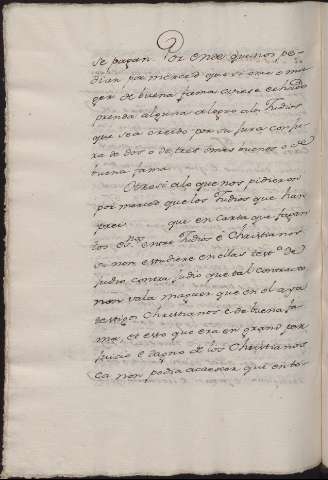 se pagan. Por ende quenos pe-
dian por merced que si ome o mu
ger de buena fama oviese echado
prenda alguna o logro a los Judios
que sea creido por su jura con ju
ra de dos o de tres omes buenos o de
buena fama
Otrosi a lo que nos pidieron
por merced que los Judios que han
previ que en carta que façan
los es.nos entre Judios e Christianos
si non estudiere en ellas test.o de
Judio contra Judio que tal contracto
non vala maguer que en el aya
testigos Christianos e de buena fa
ma, et esto que era en grand per
juicio e dagno de los Christianos
Ca non podia acaescer que en to-